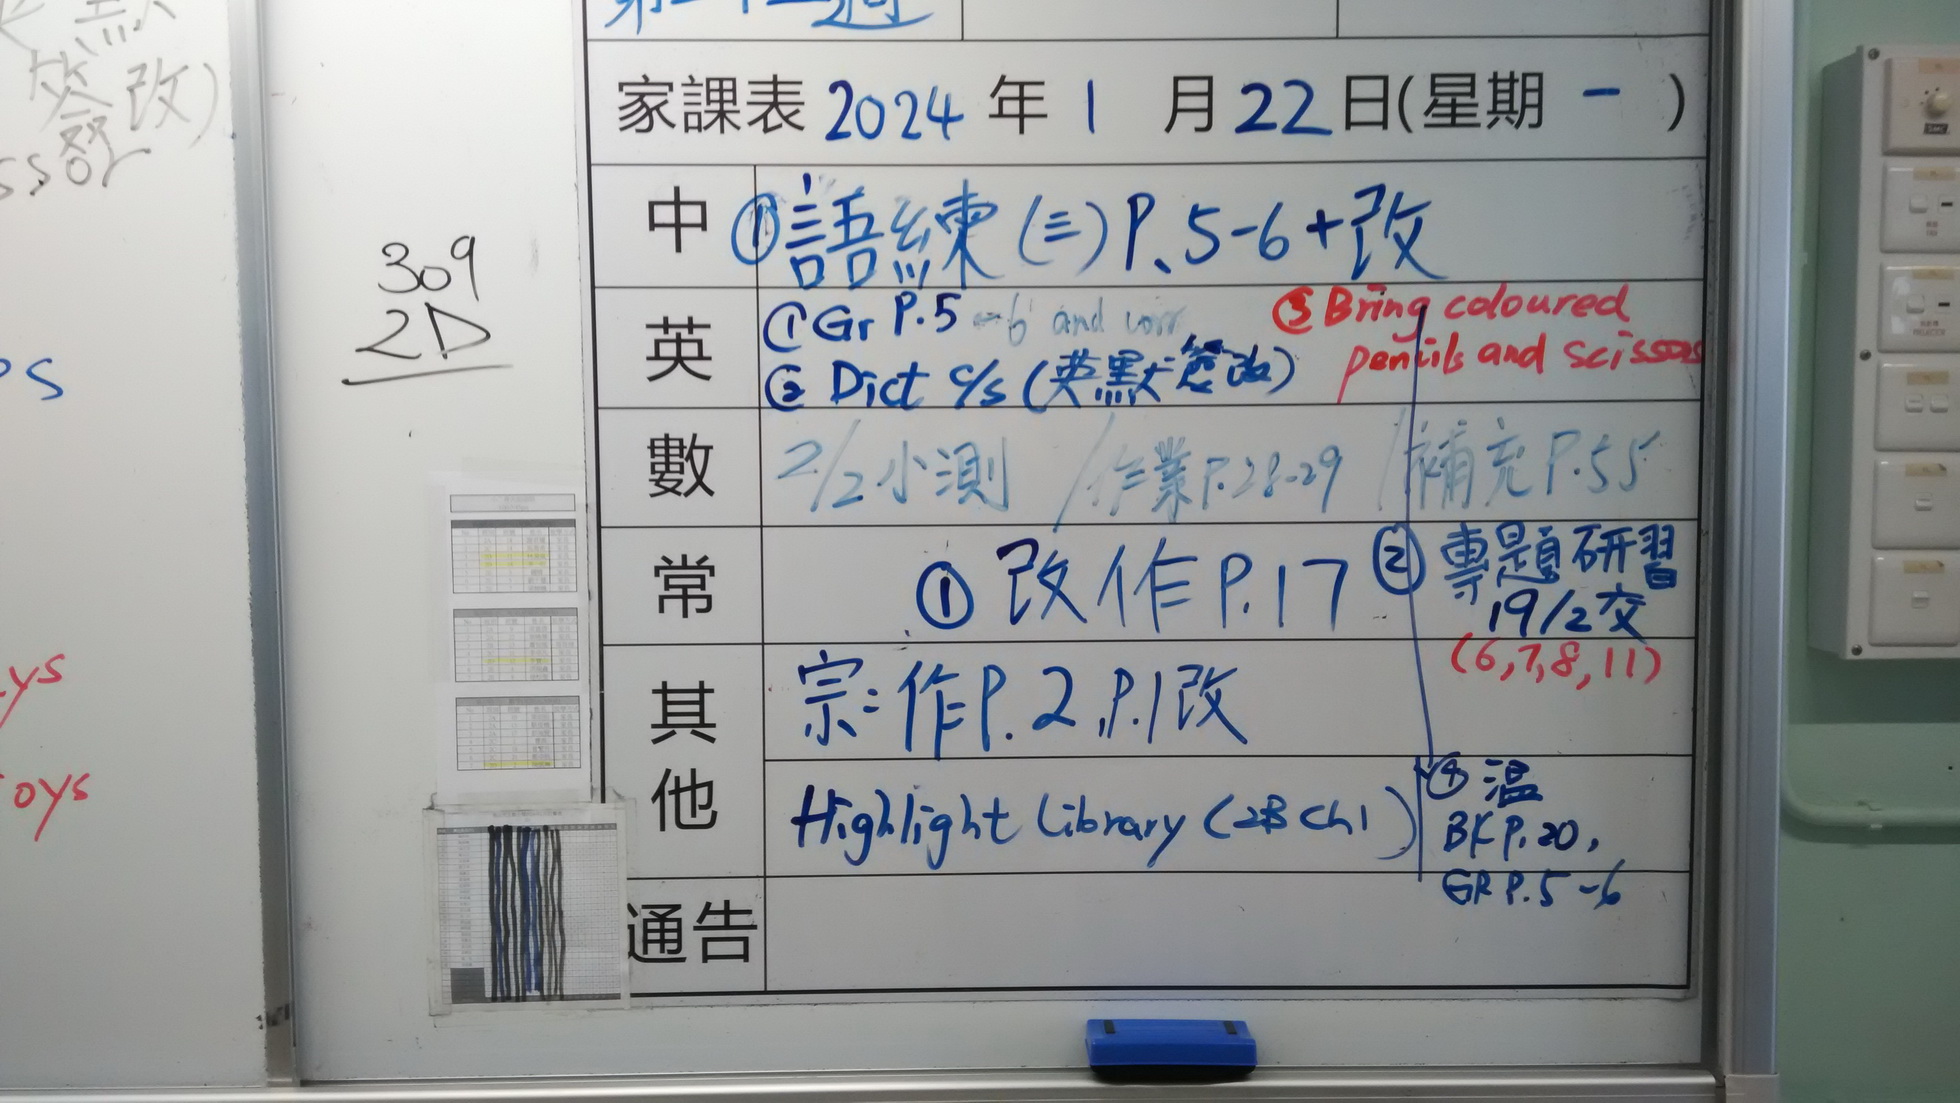 家課表 2024 年 1 月 22 日(星期 一 )
中 ①語練(三)P.5-6+改
英 ①Gr P.5-6 and corr
② Dict c/s (英默簽改)
③ Bring coloured
pencils and scissors
數 2/2小測 /作業P.28-29 /補充P.55
常 ①改作P.17 ②專題研習
19/2交
(6,7,8,11)
其他 宗:作P.2,P.1改
Highlight Library (2B Ch1)
④溫
BK P.20,
GR P.5-6
通告
309
2D
簽改)
ssor
ps
ys
oys